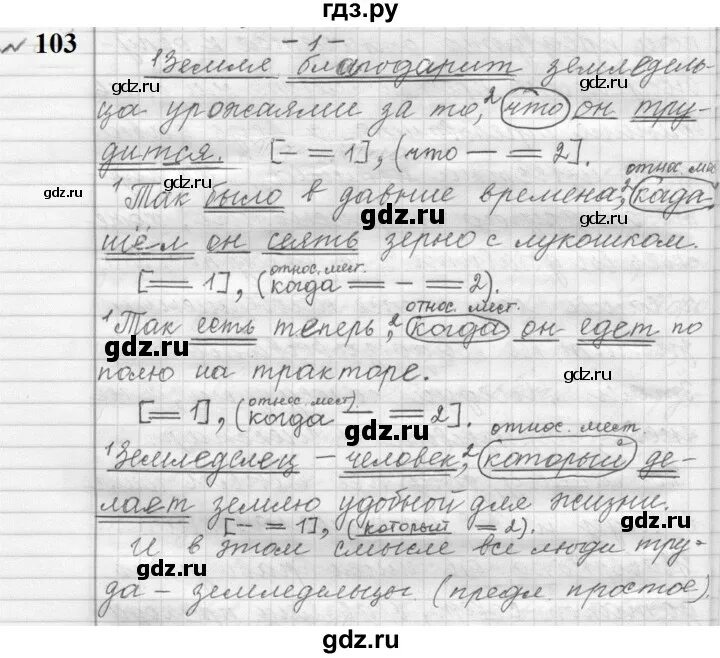 гдз.ру
№ 103
- 1 -
¹Земля благодарит земледель-
ца урожаями за то, ²что он тру-
дится. [— = 1], (что — = 2].
относ. мес
¹Так было в давние времена, ²когда
шёл он сеять зерно с лукошком.
относ. мест.
[= 1], (когда = — = 2).
относ. мест.
¹Так есть теперь, ²когда он едет по
полю на тракторе.
относ. мест)
[= 1], (когда — = 2].
относ. мест.
¹Земледелец – человек, ²который де-
лает землю удобной для жизни.
[— = 1], (который = 2).
И в этом смысле все люди тру-
да – земледельцы. (предл. простое)
gdz.ru
gdz.ru
gdz.ru
gdz.ru
gdz.ru
gdz.ru
gdz.ru
gdz.ru
gdz.ru
gdz.ru
gdz.ru
gdz.ru
gdz.ru